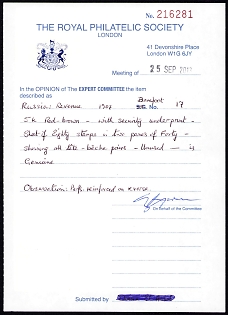 No. 216281
THE ROYAL PHILATELIC SOCIETY
LONDON
41 Devonshire Place
London W1G 6JY
Meeting of 25 SEP 2012
In the OPINION of THE EXPERT COMMITTEE the item
described as
Russia: Revenue 1907 Barefoot
S.G. No. 17
5k Red-brown - with security underprint -
Sheet of Eighty stamps in two panes of Forty -
showing all tête-bêche pairs - Unused - is
Genuine
Observation: Perfs. reinforced on reverse.
On behalf of the Committee
Submitted by